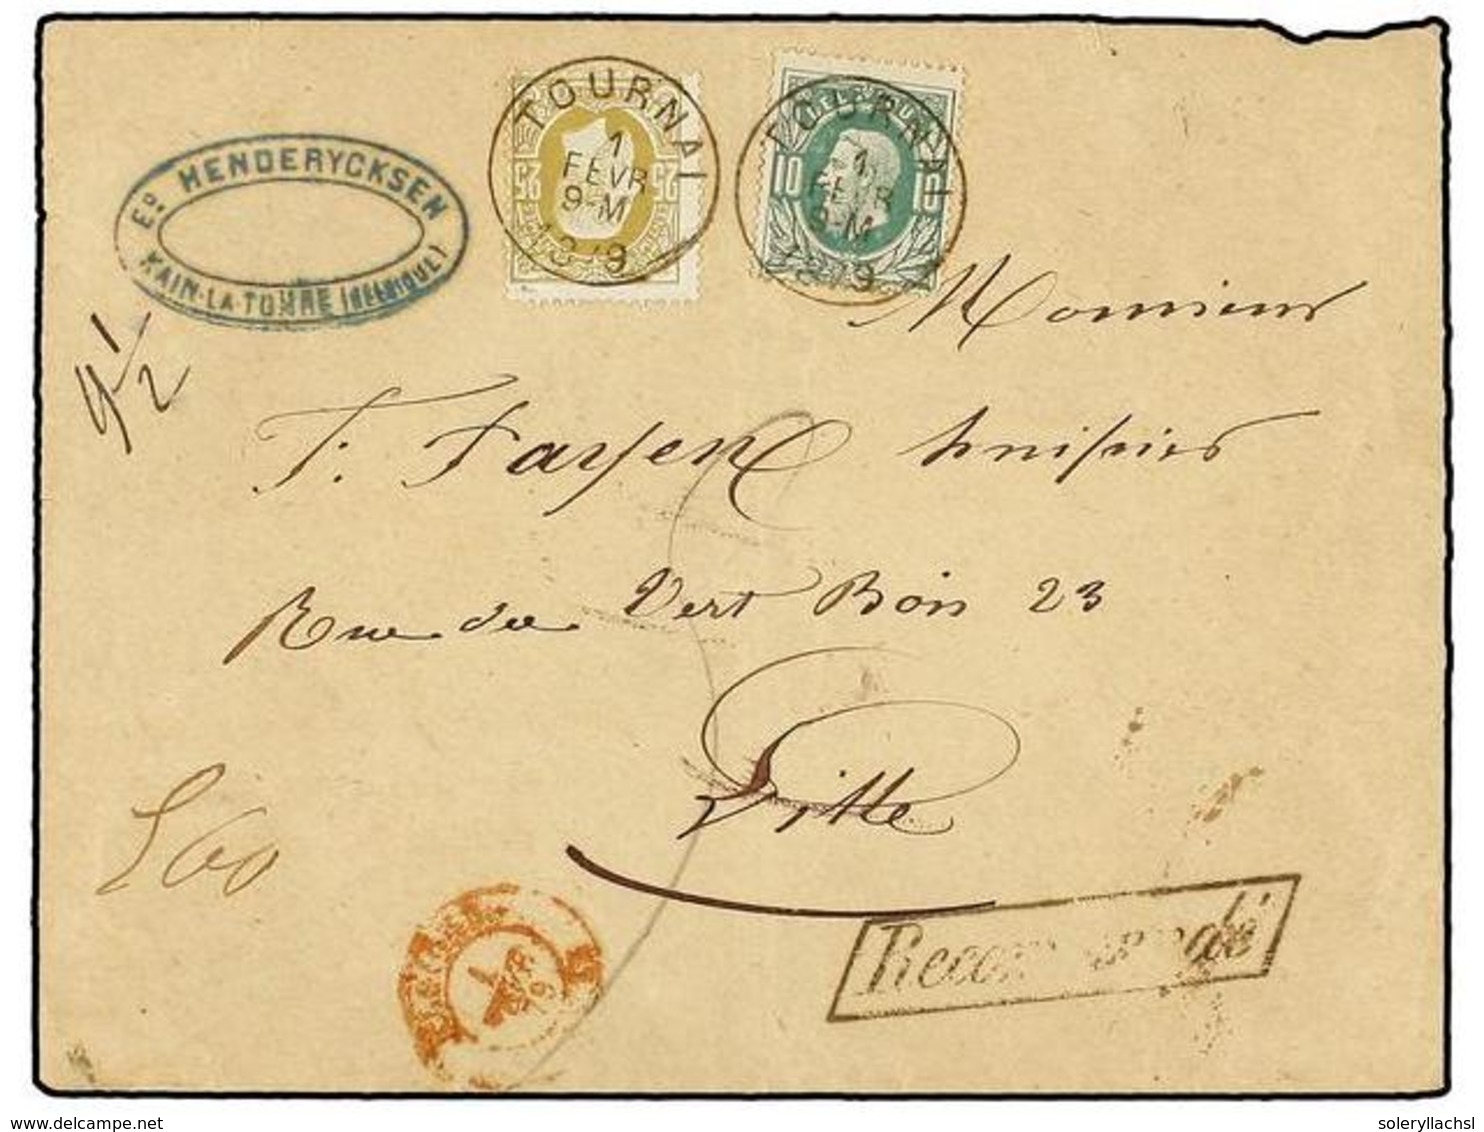 Ed. HENDERYCKSEN
KAIN-LA-TOMBE (BELGIQUE)
TOURNAI
1
FEVR
9-M
1879
25 25
TOURNAI
1
FEVR
9-M
1879
BELGIQUE
10 10
Monsieur
9 1/2
huissier
Rue du Vert Bois 23
Lille
560
Recommandé
delcampe.net
soleryllachsl